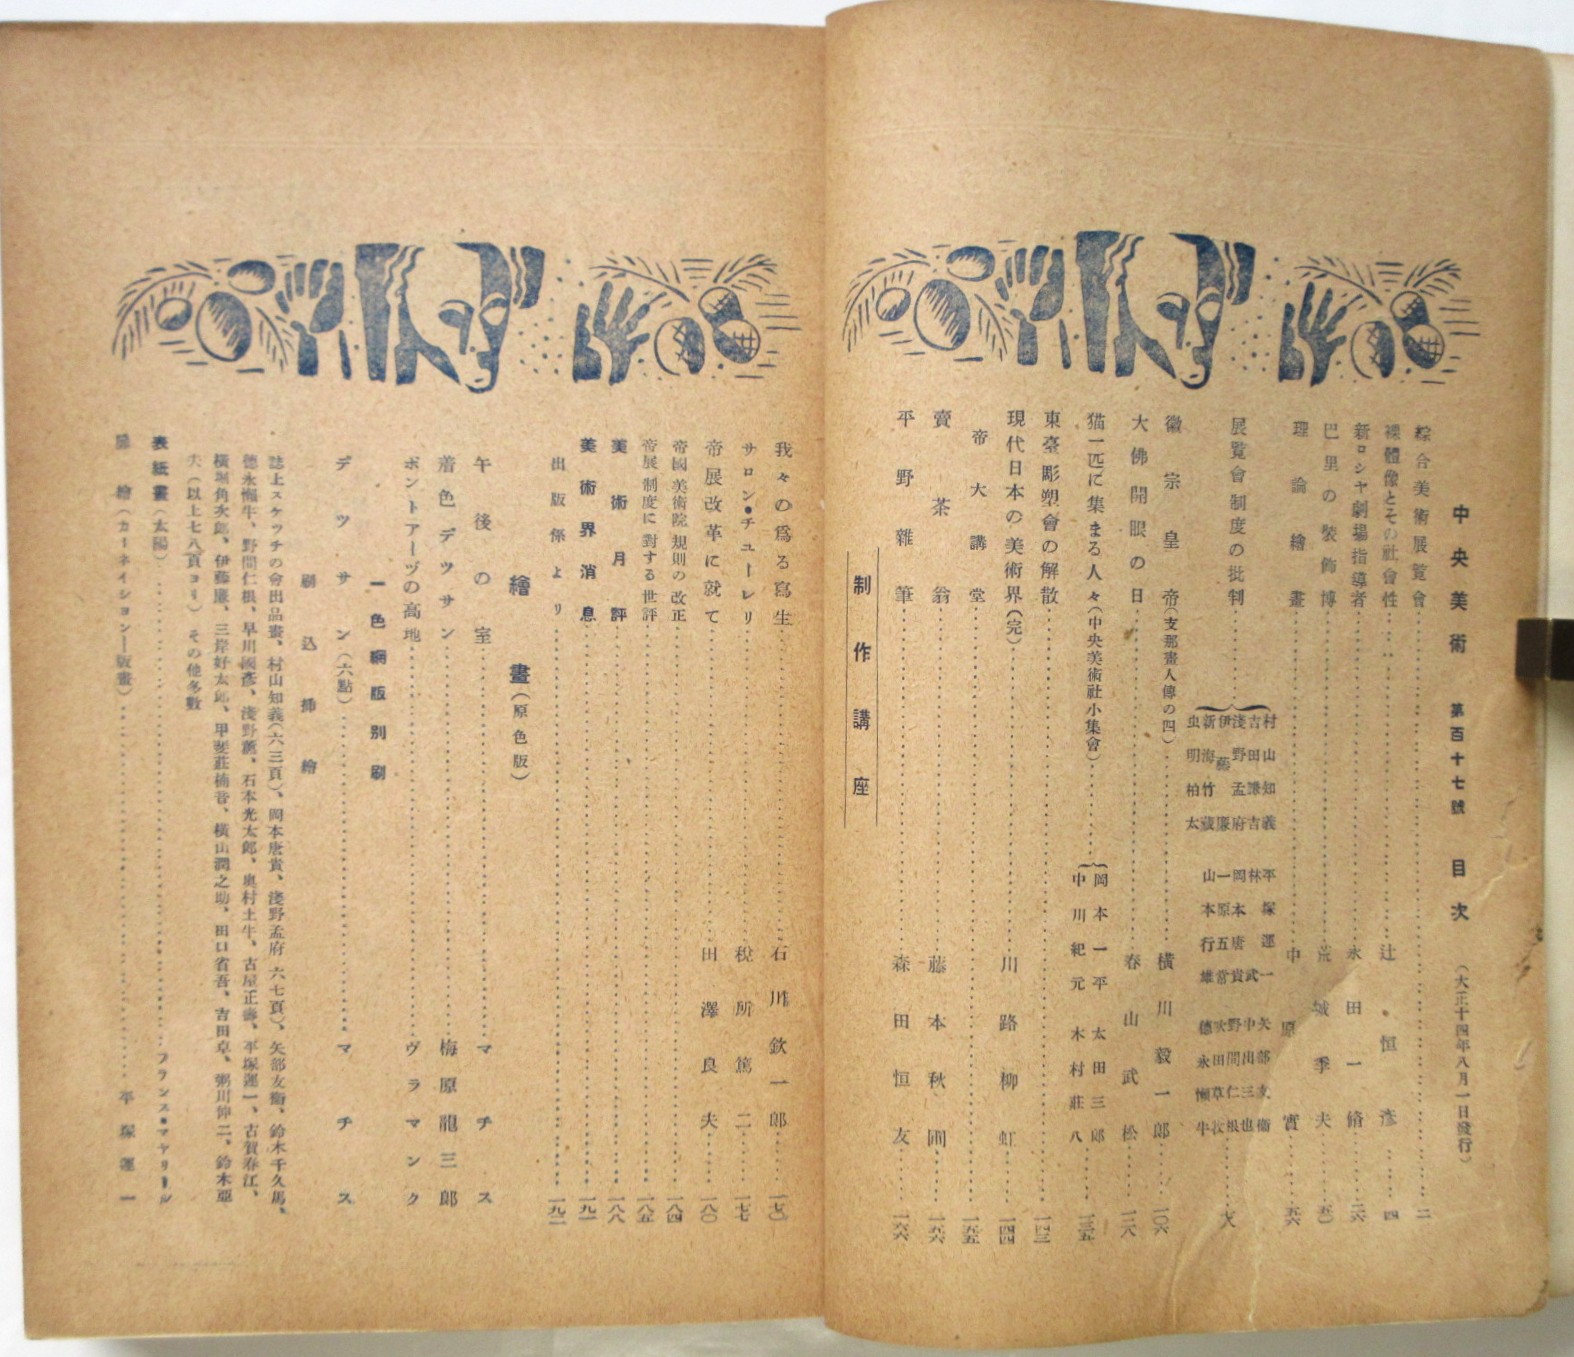 中央美術 第百十七號 目次 (大正十四年八月一日發行)
綜合美術展覧會……二
裸體像とその社會性……辻恒彦……四
新ロシヤ劇場指導者……永田一脩……二六
巴里の裝飾博……荒城季夫……五〇
理論繪畫……中原實……五六
展覧會制度の批判……
村山知義 平塚運一 矢部友衞
吉田謙吉 林武 中出三也
淺野孟府 岡本唐貴 野間仁根
伊藤廉 一原五常 吹田草牧
新海竹蔵 山本行雄 德永懶牛
虫明柏太
徽宗皇帝(支那畫人傳の四)……横川毅一郎……一〇六
大佛開眼の日……春山武松……一二八
猫一匹に集まる人々(中央美術社小集會)……
岡本一平 太田三郎
中川紀元 木村莊八……一三五
東臺彫塑會の解散……一四三
現代日本の美術界(完)……川路柳虹……一四四
帝大講堂……一五五
賣茶翁……藤本秋圃……一五六
平野雜筆……森田恒友……一六六
制作講座
我々の爲る寫生……石川欽一郎……一七〇
サロン・チユーレリ……税所篤二……一七七
帝展改革に就て……田澤良夫……一八〇
帝國美術院規則の改正……一八四
帝展制度に對する世評……一八五
美術月評……一八八
美術界消息……一九一
出版係より……一九二
繪畫(原色版)
午後の室……マチス
着色デツサン……梅原龍三郎
ポントアーヅの高地……ヴラマンク
一色網版別刷
デツサン(六點)……マチス
刷込挿繪
誌上スケツチの會出品畫、村山知義(六三頁)、岡本唐貴、淺野孟府 六七頁)、矢部友衞、鈴木千久馬、
德永懶牛、野間仁根、早川國彦、淺野薫、石本光太郎、奥村土牛、古屋正壽、平塚運一、古賀春江、
横堀角次郎、伊藤廉、三岸好太郎、甲斐莊楠音、横山潤之助、田口省吾、吉田卓、粥川伸二、鈴木亞
夫(以上七八頁ヨリ) その他多數
表紙畫(太陽)……フランス・マヤリール
扉繪(カーネイション―版畫)……平塚運一